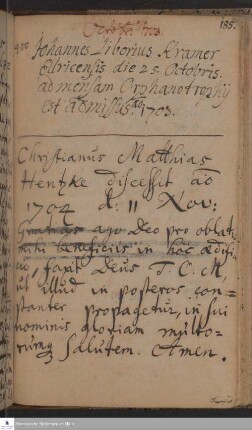 185.
Octobr. 1703.
900 Johannes Liborius Kramer
die 25. Octobris.
ad mensam Orphanotrophij
est admissus. 1703.
Christianus Matthias
Hentzke discessit ao
1704 d. 11 Nov:
Gratias ago Deo pro oblatis
mihi beneficiis in hoc aedifi
faxit Deus T. O. M.
ut illud in posteros con-
stanter propagetur, in sui
nominis gloriam multo-
rumq salutem. Amen.